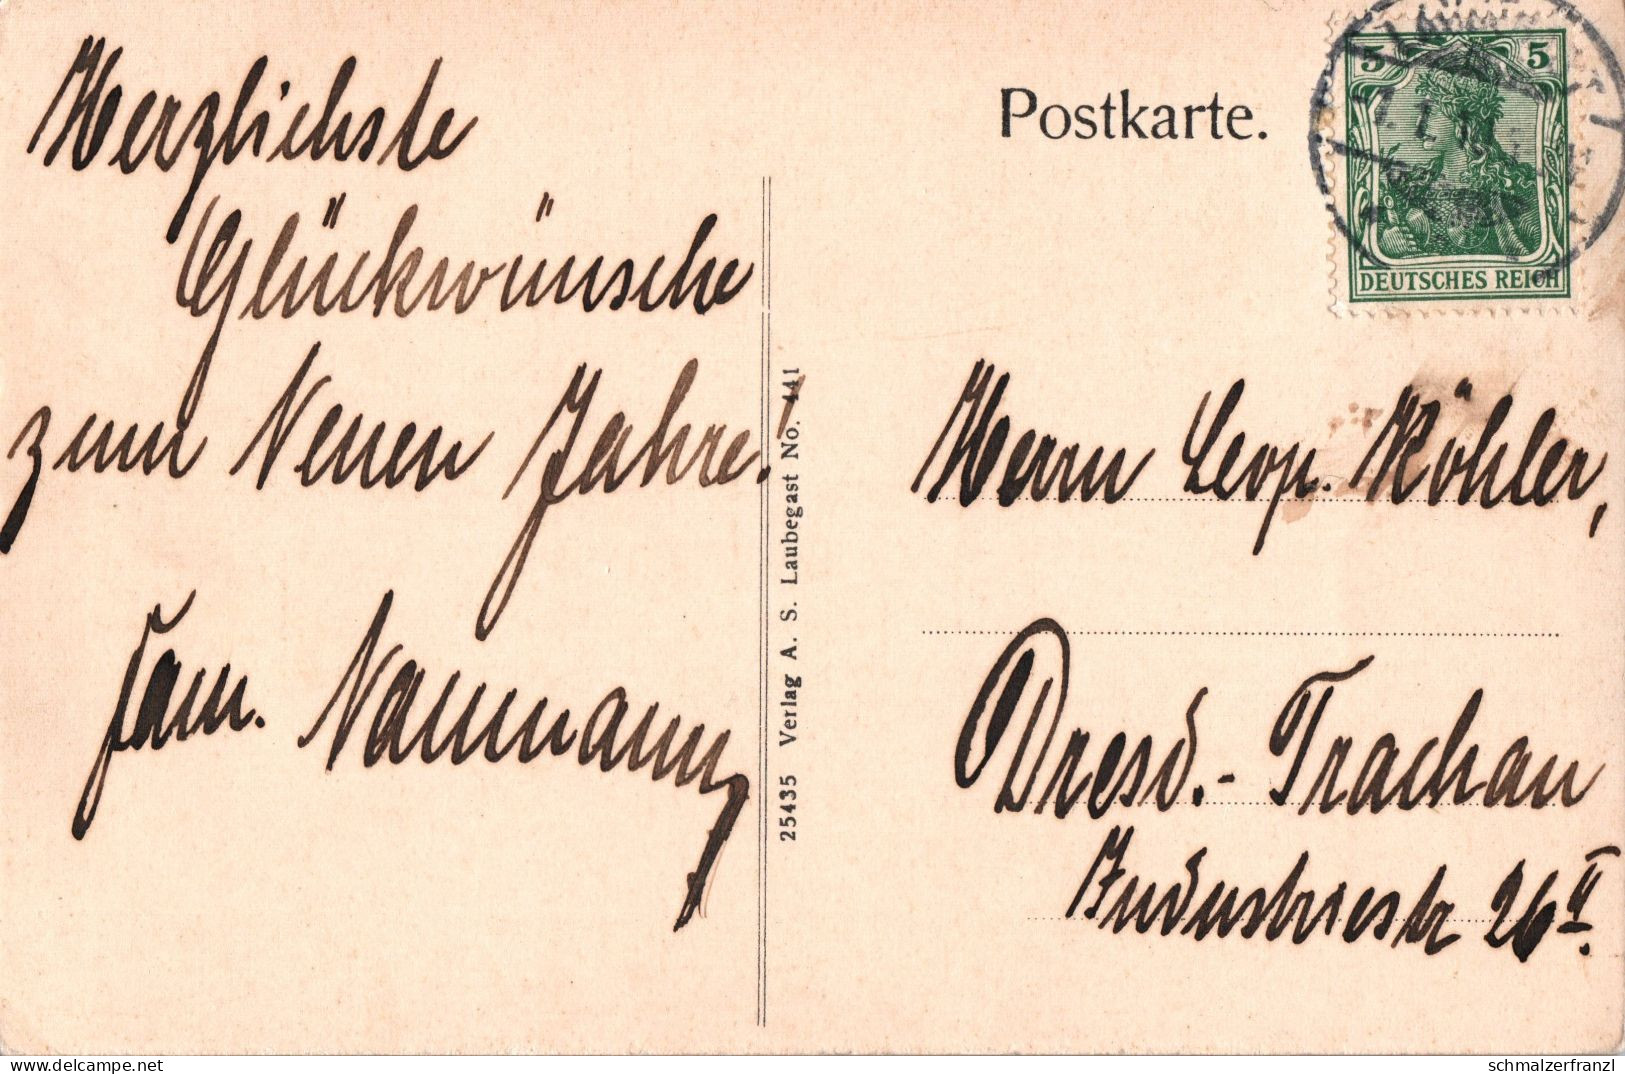 Herzlichste
Glückwünsche
zum Neuen Jahre!
Fam. Naumann
25435 Verlag A. S. Laubegast No. 441
Postkarte.
5 5
DEUTSCHES REICH
Herrn Leop. Köhler,
Dresd.- Trachau
Industriestr 26 II.
www.delcampe.net
schmalzerfranzl